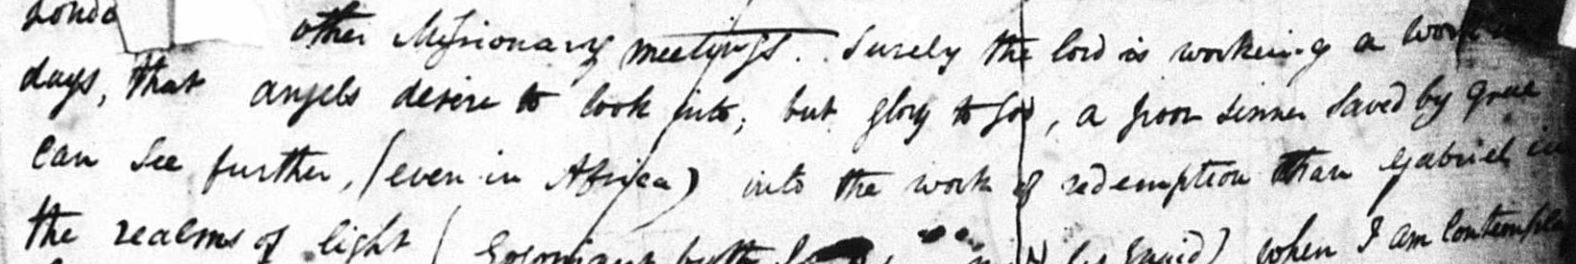 other Missionary meetings. Surely the lord is working a work in
days, that angels desire to look into; but glory to God, a poor sinner saved by grace
can see further, (even in Africa) into the work of redemption than Gabriel in
the realms of light ( when I am contempla